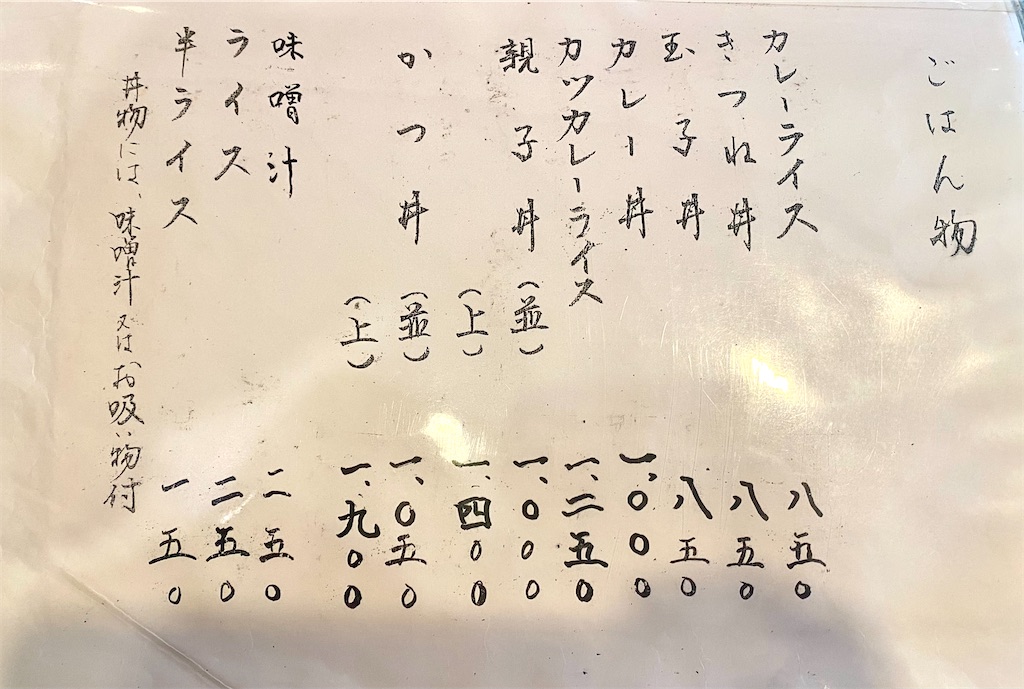 ごはん物
カレーライス 八五〇
きつね丼 八五〇
玉子丼 八五〇
カレー丼 一、〇〇〇
カツカレーライス 一、二五〇
親子丼(並) 一、〇〇〇
(上) 一、四〇〇
かつ丼(並) 一、〇五〇
(上) 一、九〇〇
味噌汁 二五〇
ライス 二五〇
半ライス 一五〇
丼物には、味噌汁又はお吸い物付